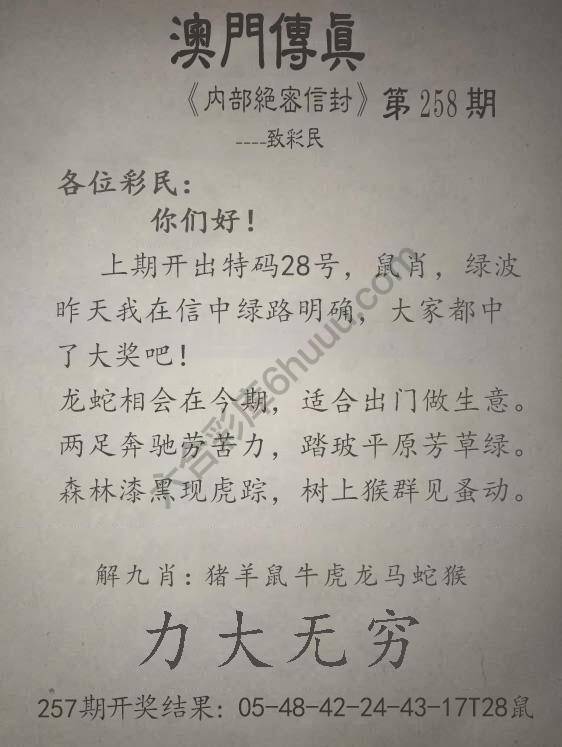 澳門傳眞
《内部絕密信封》第258期
----致彩民
各位彩民：
你们好！
上期开出特码28号，鼠肖，绿波
昨天我在信中绿路明确，大家都中
了大奖吧！
龙蛇相会在今期，适合出门做生意。
两足奔驰劳苦力，踏玻平原芳草绿。
森林漆黑现虎踪，树上猴群见蚤动。
六合彩库6huuu.com
解九肖：猪羊鼠牛虎龙马蛇猴
力大无穷
257期开奖结果：05-48-42-24-43-17T28鼠